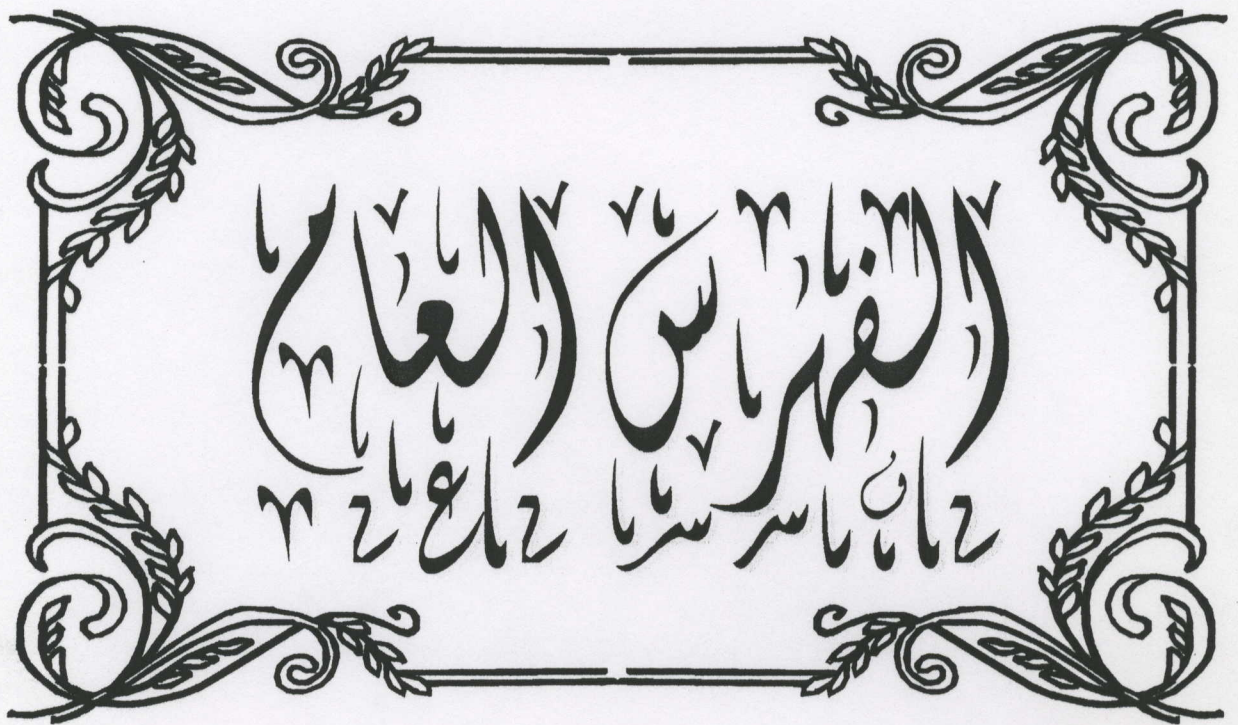 الفهرس العام